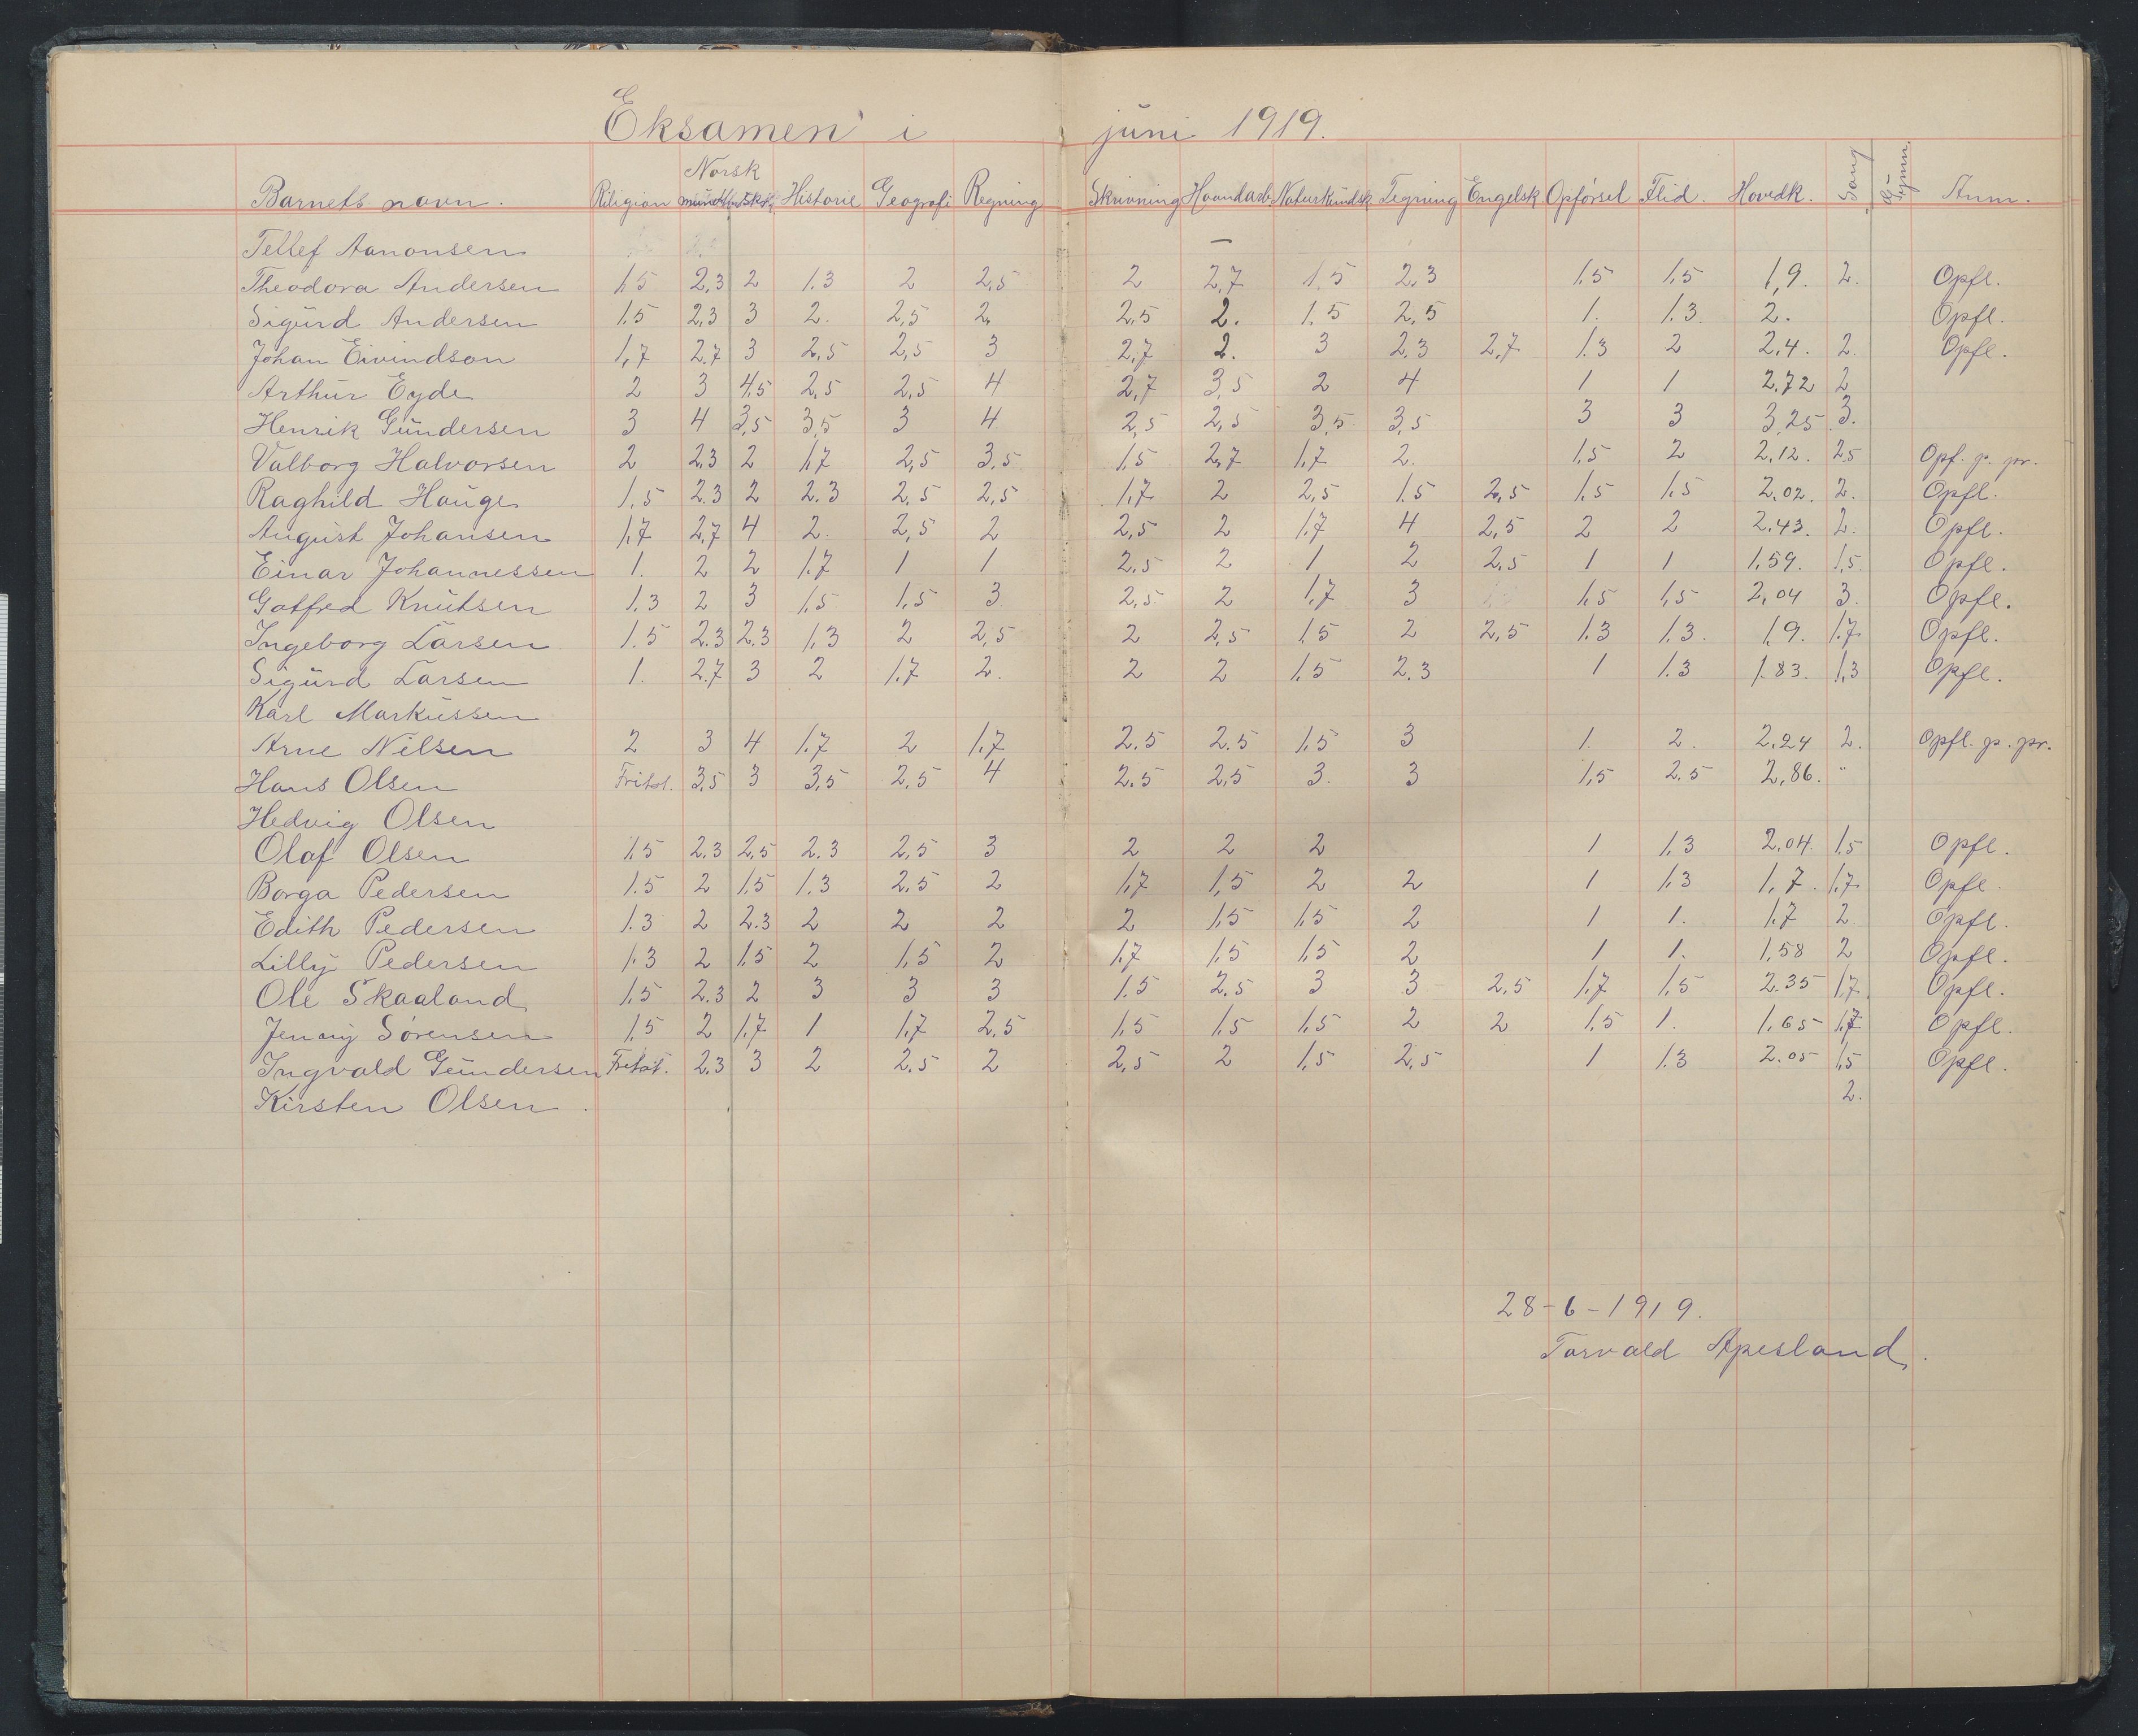 Eksamen i juni 1919.
Norsk
Barnets navn. Religion mundtl. Skr. Historie Geografi Regning Skrivning Haandarb. Naturkundsk. Tegning Engelsk Opførsel Flid. Hovedk. Sang Gymn. Anm.
Tellef Aanonsen —
Theodora Andersen 1.5 2,3 2 1.3 2 2,5 2 2,7 1,5 2,3 1.5 1.5 1,9. 2. Opfl.
Sigurd Andersen 1.5 2,3 3 2. 2,5 2. 2.5 2. 1.5 2,5 1. 1.3. 2. Opfl.
Johan Eivindson 1,7 2.7 3 2,5 2,5 3 2,7 2. 3 2.3 2,7 1.3 2 2,4. 2. Opfl.
Arthur Eyde 2 3 4,5 2,5 2,5 4 2,7 3,5 2 4 1 1 2,72 2
Henrik Gundersen 3 4 3,5 3,5 3 4 2,5 2,5 3,5 3,5 3 3 3,25 3.
Valborg Halvorsen 2 2,3 2 1,7 2,5 3,5 1.5 2,7 1,7 2. 1.5 2 2,12. 2.5 Opf. p. pr.
Raghild Hauge 1,5 2.3 2 2.3 2,5 2,5 1,7 2 2,5 1.5 2,5 1.5 1.5 2,02. 2. Opfl.
August Johansen 1,7 2,7 4 2. 2,5 2 2,5 2 1.7 4 2,5 2 2 2.43. 2. Opfl.
Einar Johannessen 1. 2 2 1.7 1 1 2.5 2 1 2 2,5 1 1 1,59. 1,5. Opfl.
Gotfred Knutsen 1,3 2 3 1,5 1,5 3 2,5 2 1,7 3 1,5 1,5 2,04 3. Opfl.
Ingeborg Larsen 1.5 2.3 2.3 1,3 2 2,5 2 2,5 1.5 2 2,5 1.3 1.3. 1,9. 1.7 Opfl.
Sigurd Larsen 1. 2.7 3 2 1.7 2. 2 2 1.5 2.3 1 1.3 1.83. 1,3 Opfl.
Karl Markussen
Arne Nilsen 2 3 4 1.7 2 1,7 2.5 2.5 1.5 3 1. 2. 2,24 2. Opfl. p. pr.
Hans Olsen Fritat. 3,5 3 3,5 2,5 4 2.5 2,5 3. 3 1,5 2.5 2,86. "
Hedvig Olsen
Olaf Olsen 1.5 2.3 2,5 2.3 2,5 3 2 2 2 1 1,3 2,04. 1.5 Opfl.
Borga Pedersen 1.5 2 1.5 1.3 2.5 2 1,7 1,5 2 2 1 1,3 1,7. 1.7. Opfl.
Edith Pedersen 1.3 2 2.3 2 2 2 2 1.5 1.5 2 1 1. 1.7 2. Opfl.
Lilly Pedersen 1.3 2 1.5 2 1.5 2 1.7 1.5 1.5 2 1 1. 1,58 2 Opfl.
Ole Skaaland 1.5 2.3 2 3 3 3 1.5 2.5 3 3 2,5 1.7 1,5 2.35 1,7. Opfl.
Jenny Sørensen 1,5 2 1,7 1 1,7 2,5 1.5 1.5 1.5 2 2 1,5 1. 1,65 1,7 Opfl.
Ingvald Gundersen Fritat. 2.3 3 2 2.5 2 2,5 2 1,5 2,5 1 1.3 2.05 1,5 Opfl.
Kirsten Olsen. 2.
28-6-1919.
Torvald Apesland.